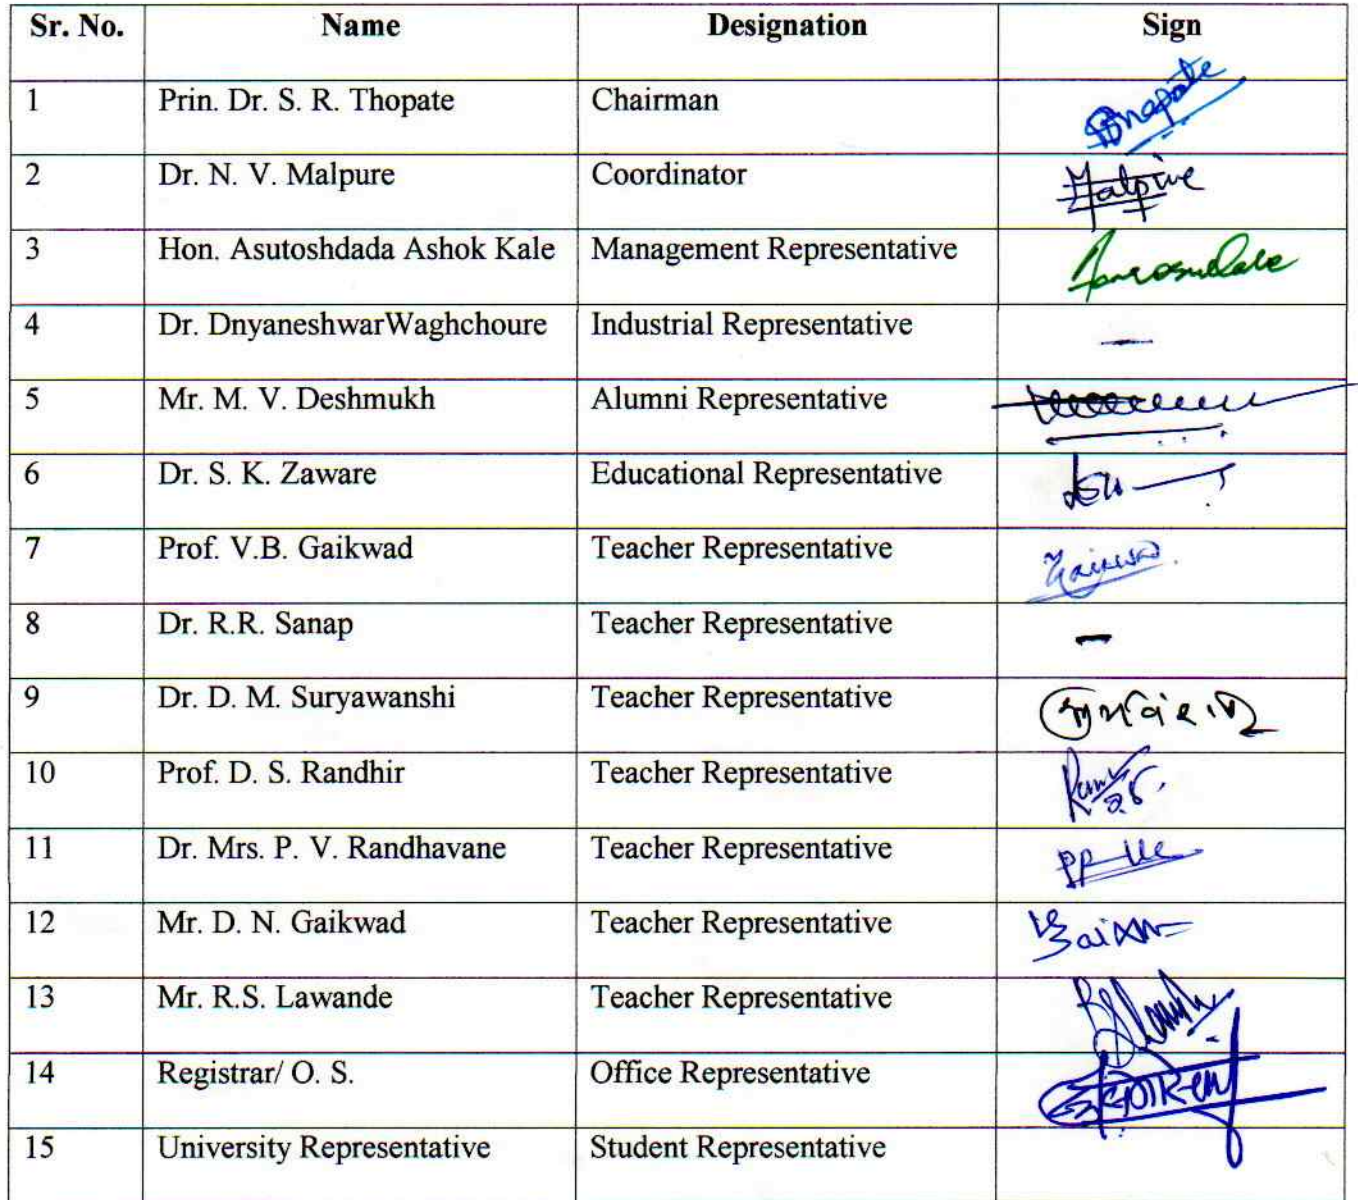 Sr. No. Name Designation Sign
1 Prin. Dr. S. R. Thopate Chairman
2 Dr. N. V. Malpure Coordinator
3 Hon. Asutoshdada Ashok Kale Management Representative
4 Dr. DnyaneshwarWaghchoure Industrial Representative —
5 Mr. M. V. Deshmukh Alumni Representative
6 Dr. S. K. Zaware Educational Representative
7 Prof. V.B. Gaikwad Teacher Representative
8 Dr. R.R. Sanap Teacher Representative —
9 Dr. D. M. Suryawanshi Teacher Representative
10 Prof. D. S. Randhir Teacher Representative
11 Dr. Mrs. P. V. Randhavane Teacher Representative
12 Mr. D. N. Gaikwad Teacher Representative
13 Mr. R.S. Lawande Teacher Representative
14 Registrar/ O. S. Office Representative
15 University Representative Student Representative